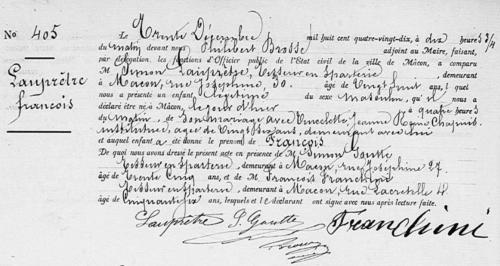 No 405
Lauprêtre
françois
Le Trente Décembre mil huit cent quatre-vingt-dix, à dix heures 3/4
du matin devant nous Philibert Brosse adjoint au Maire, faisant,
par délégation, les fonctions d'Officier public de l'État civil de la ville de Mâcon, a comparu
M. Simon Lauprêtre, Tisseur en Sparterie, demeurant
à Macon, rue Joséphine, 30. âgé de Vingt huit ans, lequel
nous a présenté un enfant, du sexe masculin, qu'il nous a
déclaré être né à Mâcon, le jour d'hier à quatre heures
du matin, de Son mariage avec Jeanne Chapuis
âgée de Vingt ans, demeurant avec lui
et auquel enfant a été donné le prénom de François
De quoi nous avons dressé le présent acte en présence de M. Simon Goutte
Tisseur en Sparterie, demeurant à Macon, rue Joséphine 27.
âgé de Trente Cinq ans, et de M. François Franchini
Tisseur en Sparterie, demeurant à Macon, rue Lacretelle 4
âgé de Cinquante ans, lesquels et l. déclarant ont signé avec nous après lecture faite.
Lauprêtre S. Goutte Franchini